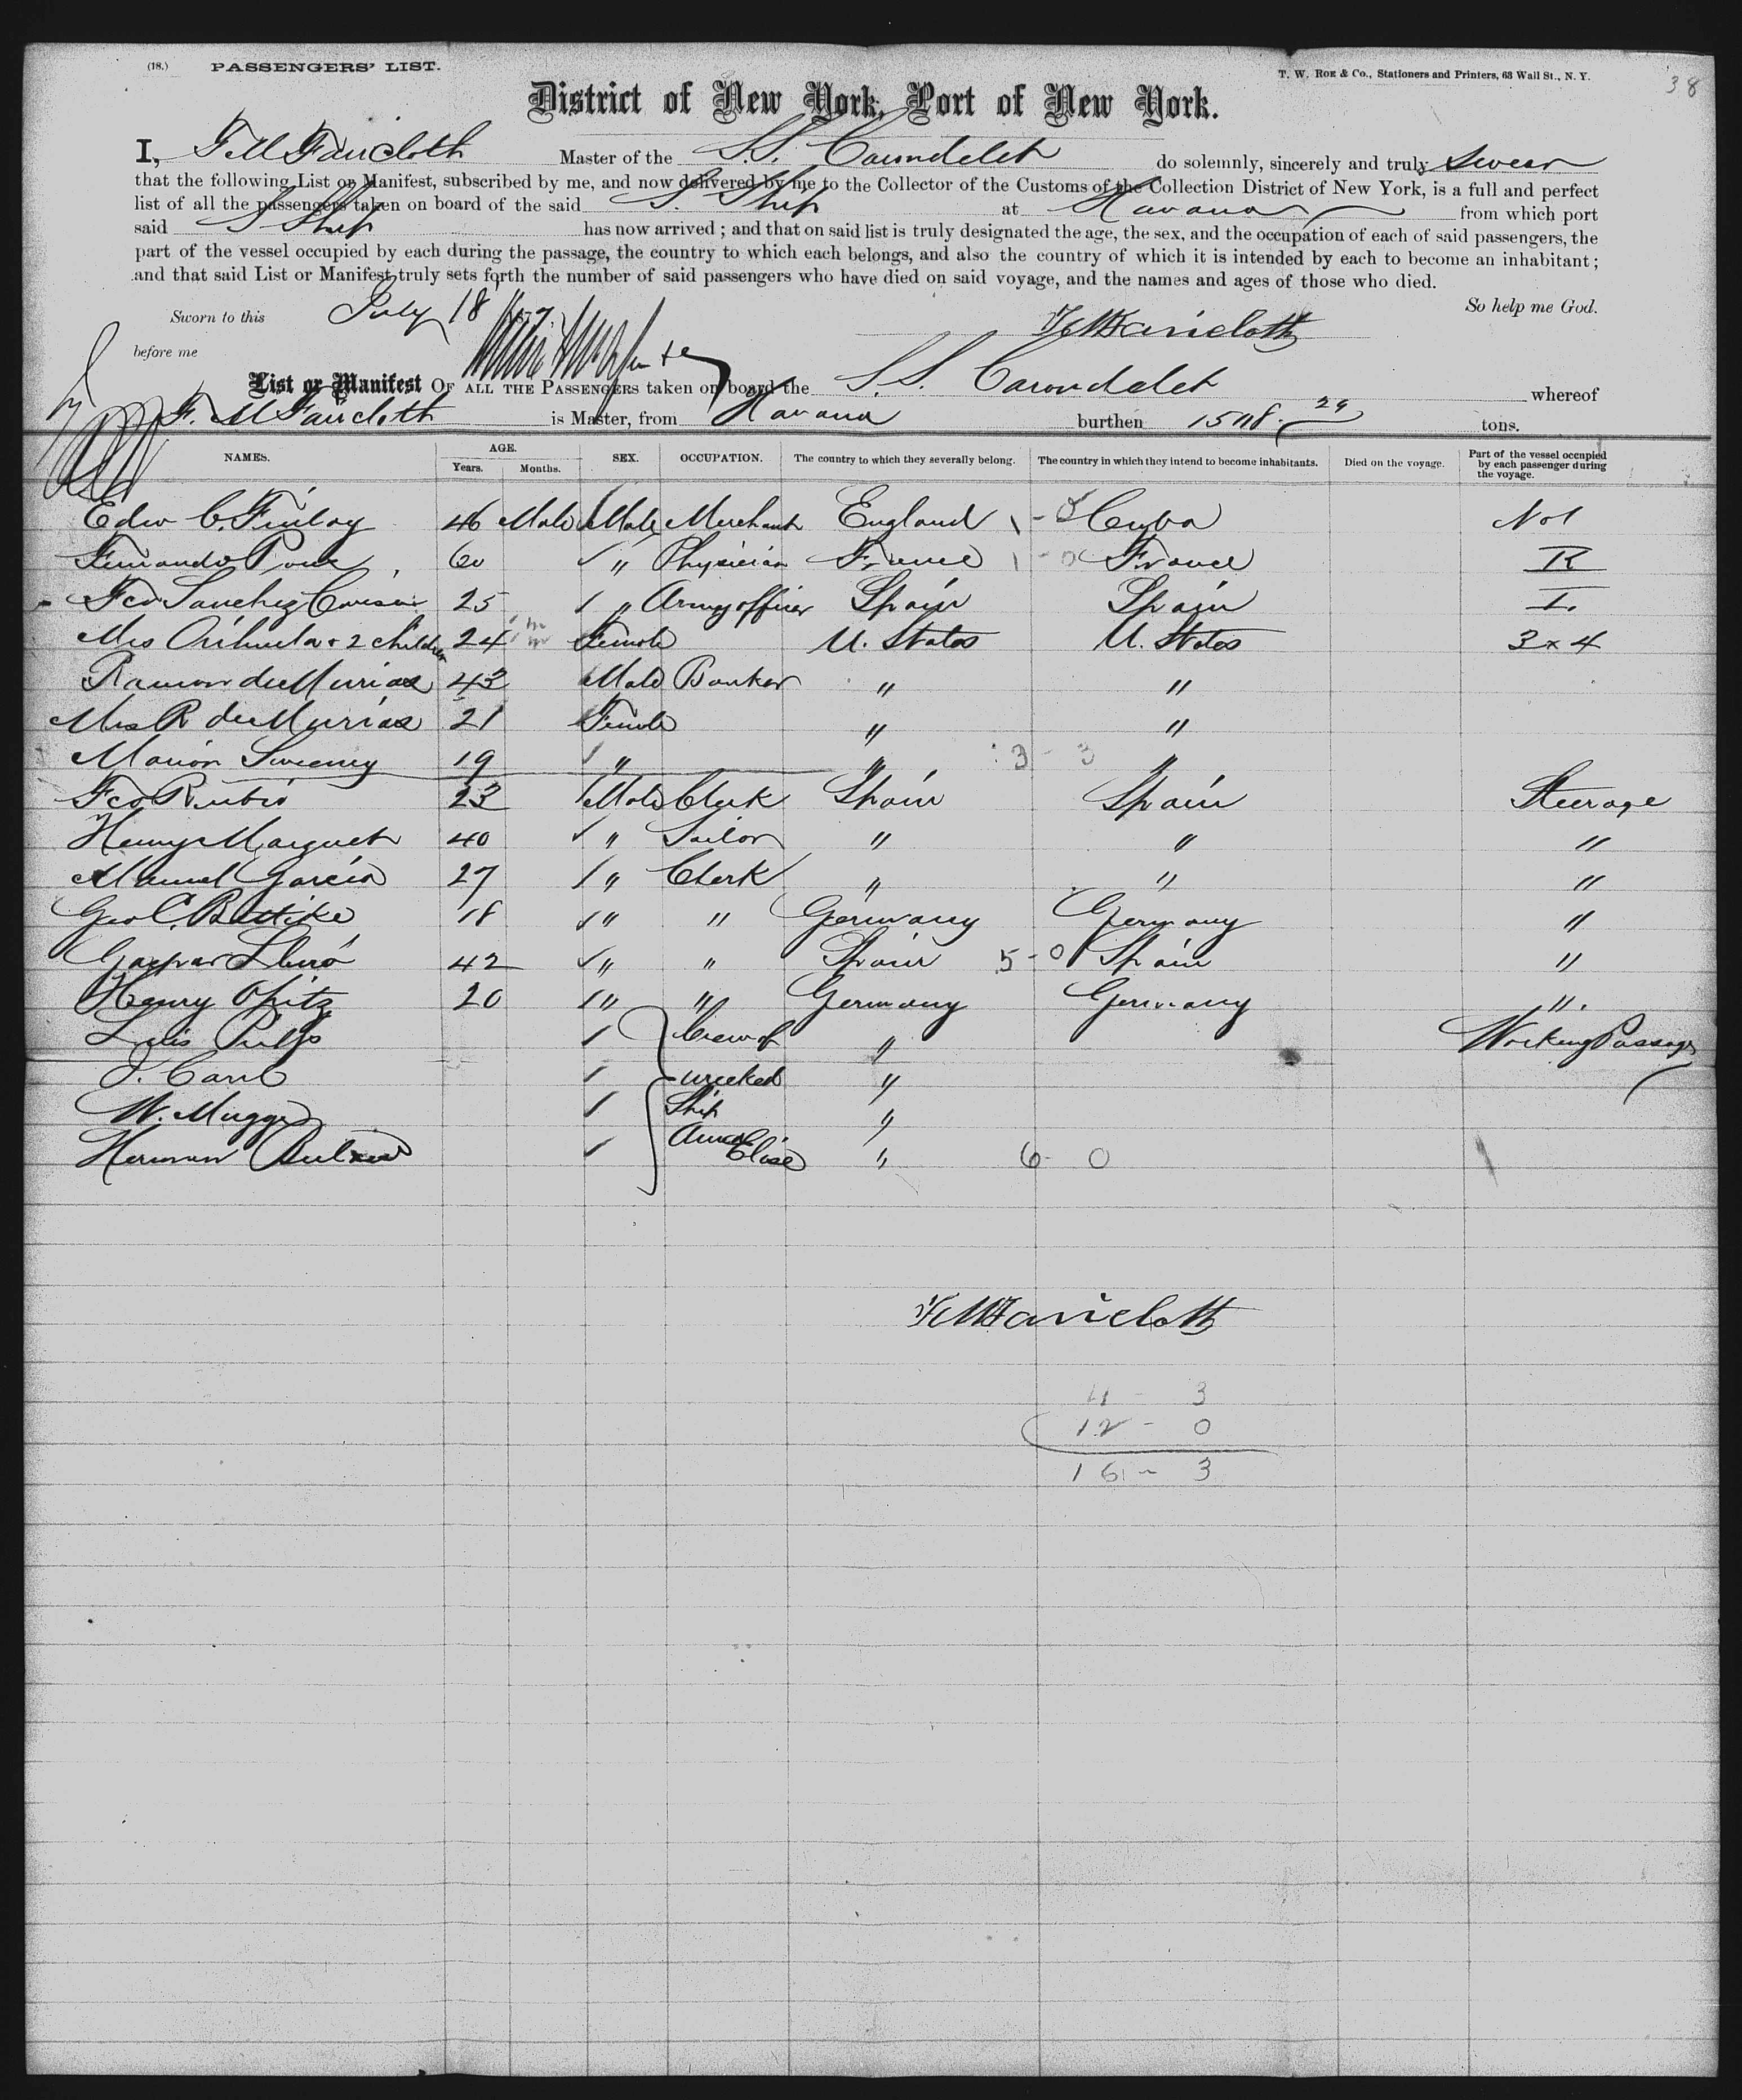 (18.) PASSENGERS' LIST.
T. W. Roe & Co., Stationers and Printers, 63 Wall St., N. Y.
38
District of New York, Port of New York.
I, F. M Faircloth Master of the S.S. Carondelet do solemnly, sincerely and truly swear
that the following List or Manifest, subscribed by me, and now delivered by me to the Collector of the Customs of the Collection District of New York, is a full and perfect
list of all the passengers taken on board of the said S. Ship at Havana from which port
said S Ship has now arrived; and that on said list is truly designated the age, the sex, and the occupation of each of said passengers, the
part of the vessel occupied by each during the passage, the country to which each belongs, and also the country of which it is intended by each to become an inhabitant;
and that said List or Manifest truly sets forth the number of said passengers who have died on said voyage, and the names and ages of those who died.
So help me God.
Sworn to this July 18
F M Faircloth
before me
List or Manifest OF ALL THE PASSENGERS taken on board the S.S. Carondelet whereof
F. M Faircloth is Master, from Havana burthen 1508. 29 tons.
NAMES. AGE. Years. Months. SEX. OCCUPATION. The country to which they severally belong. The country in which they intend to become inhabitants. Died on the voyage. Part of the vessel occupied by each passenger during the voyage.
Edw C. Finlay 46 Male Male Merchant England Cuba No 1
Fernando 60 " Physician France 1 - 0 France R
Fco Sanchez 25 " Army officer Spain Spain I.
Mrs Orihuela & 2 children 24 Female U. States U. States 3 x 4
Ramon de Murias 43 Male Banker " "
Mrs R de Murias 21 Female " "
Marion Sweeny 19 " " 3 - 3 "
Fco Rubio 23 Male Clerk Spain Spain Steerage
Henry Marguet 40 " Sailor " " "
Manuel Garcia 27 " Clerk " " "
Geo C. Battike 18 " " Germany Germany "
Gaspar 42 " " Spain 5 - 0 Spain "
Henry Opitz 20 " " Germany Germany "
Luis Crew of " Working Passage
J. Carl wrecked "
W. Mugge Ship "
Herman Anna Elise " 6 - 0
F M Faircloth
4 - 3
12 - 0
16 - 3